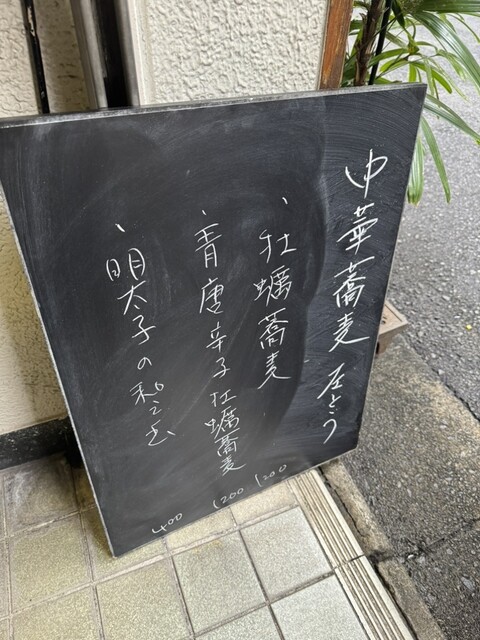 中華蕎麦 左とう
、牡蠣蕎麦 1200
、青唐辛子牡蠣蕎麦 1200
、明太子の和え玉 400